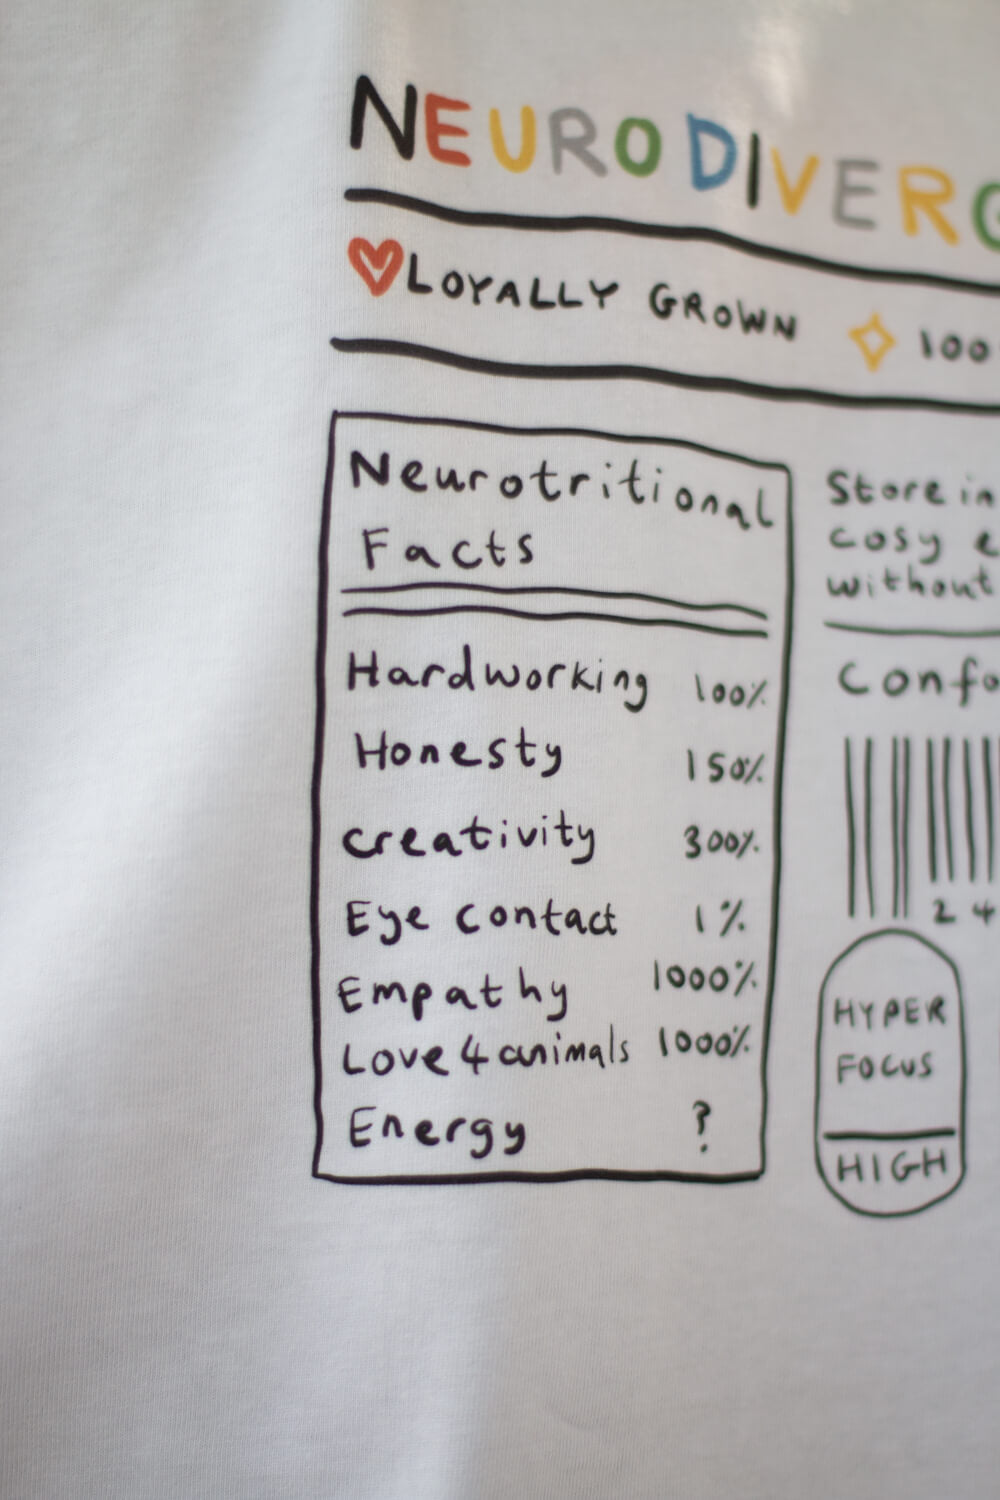 NEURODIVERG
LOYALLY GROWN 100
Neurotritional
Facts
Hardworking 100%
Honesty 150%
creativity 300%
Eye contact 1%
Empathy 1000%
Love 4 animals 1000%
Energy ?
Store in
cosy e
without
Confo
2 4
HYPER
FOCUS
HIGH